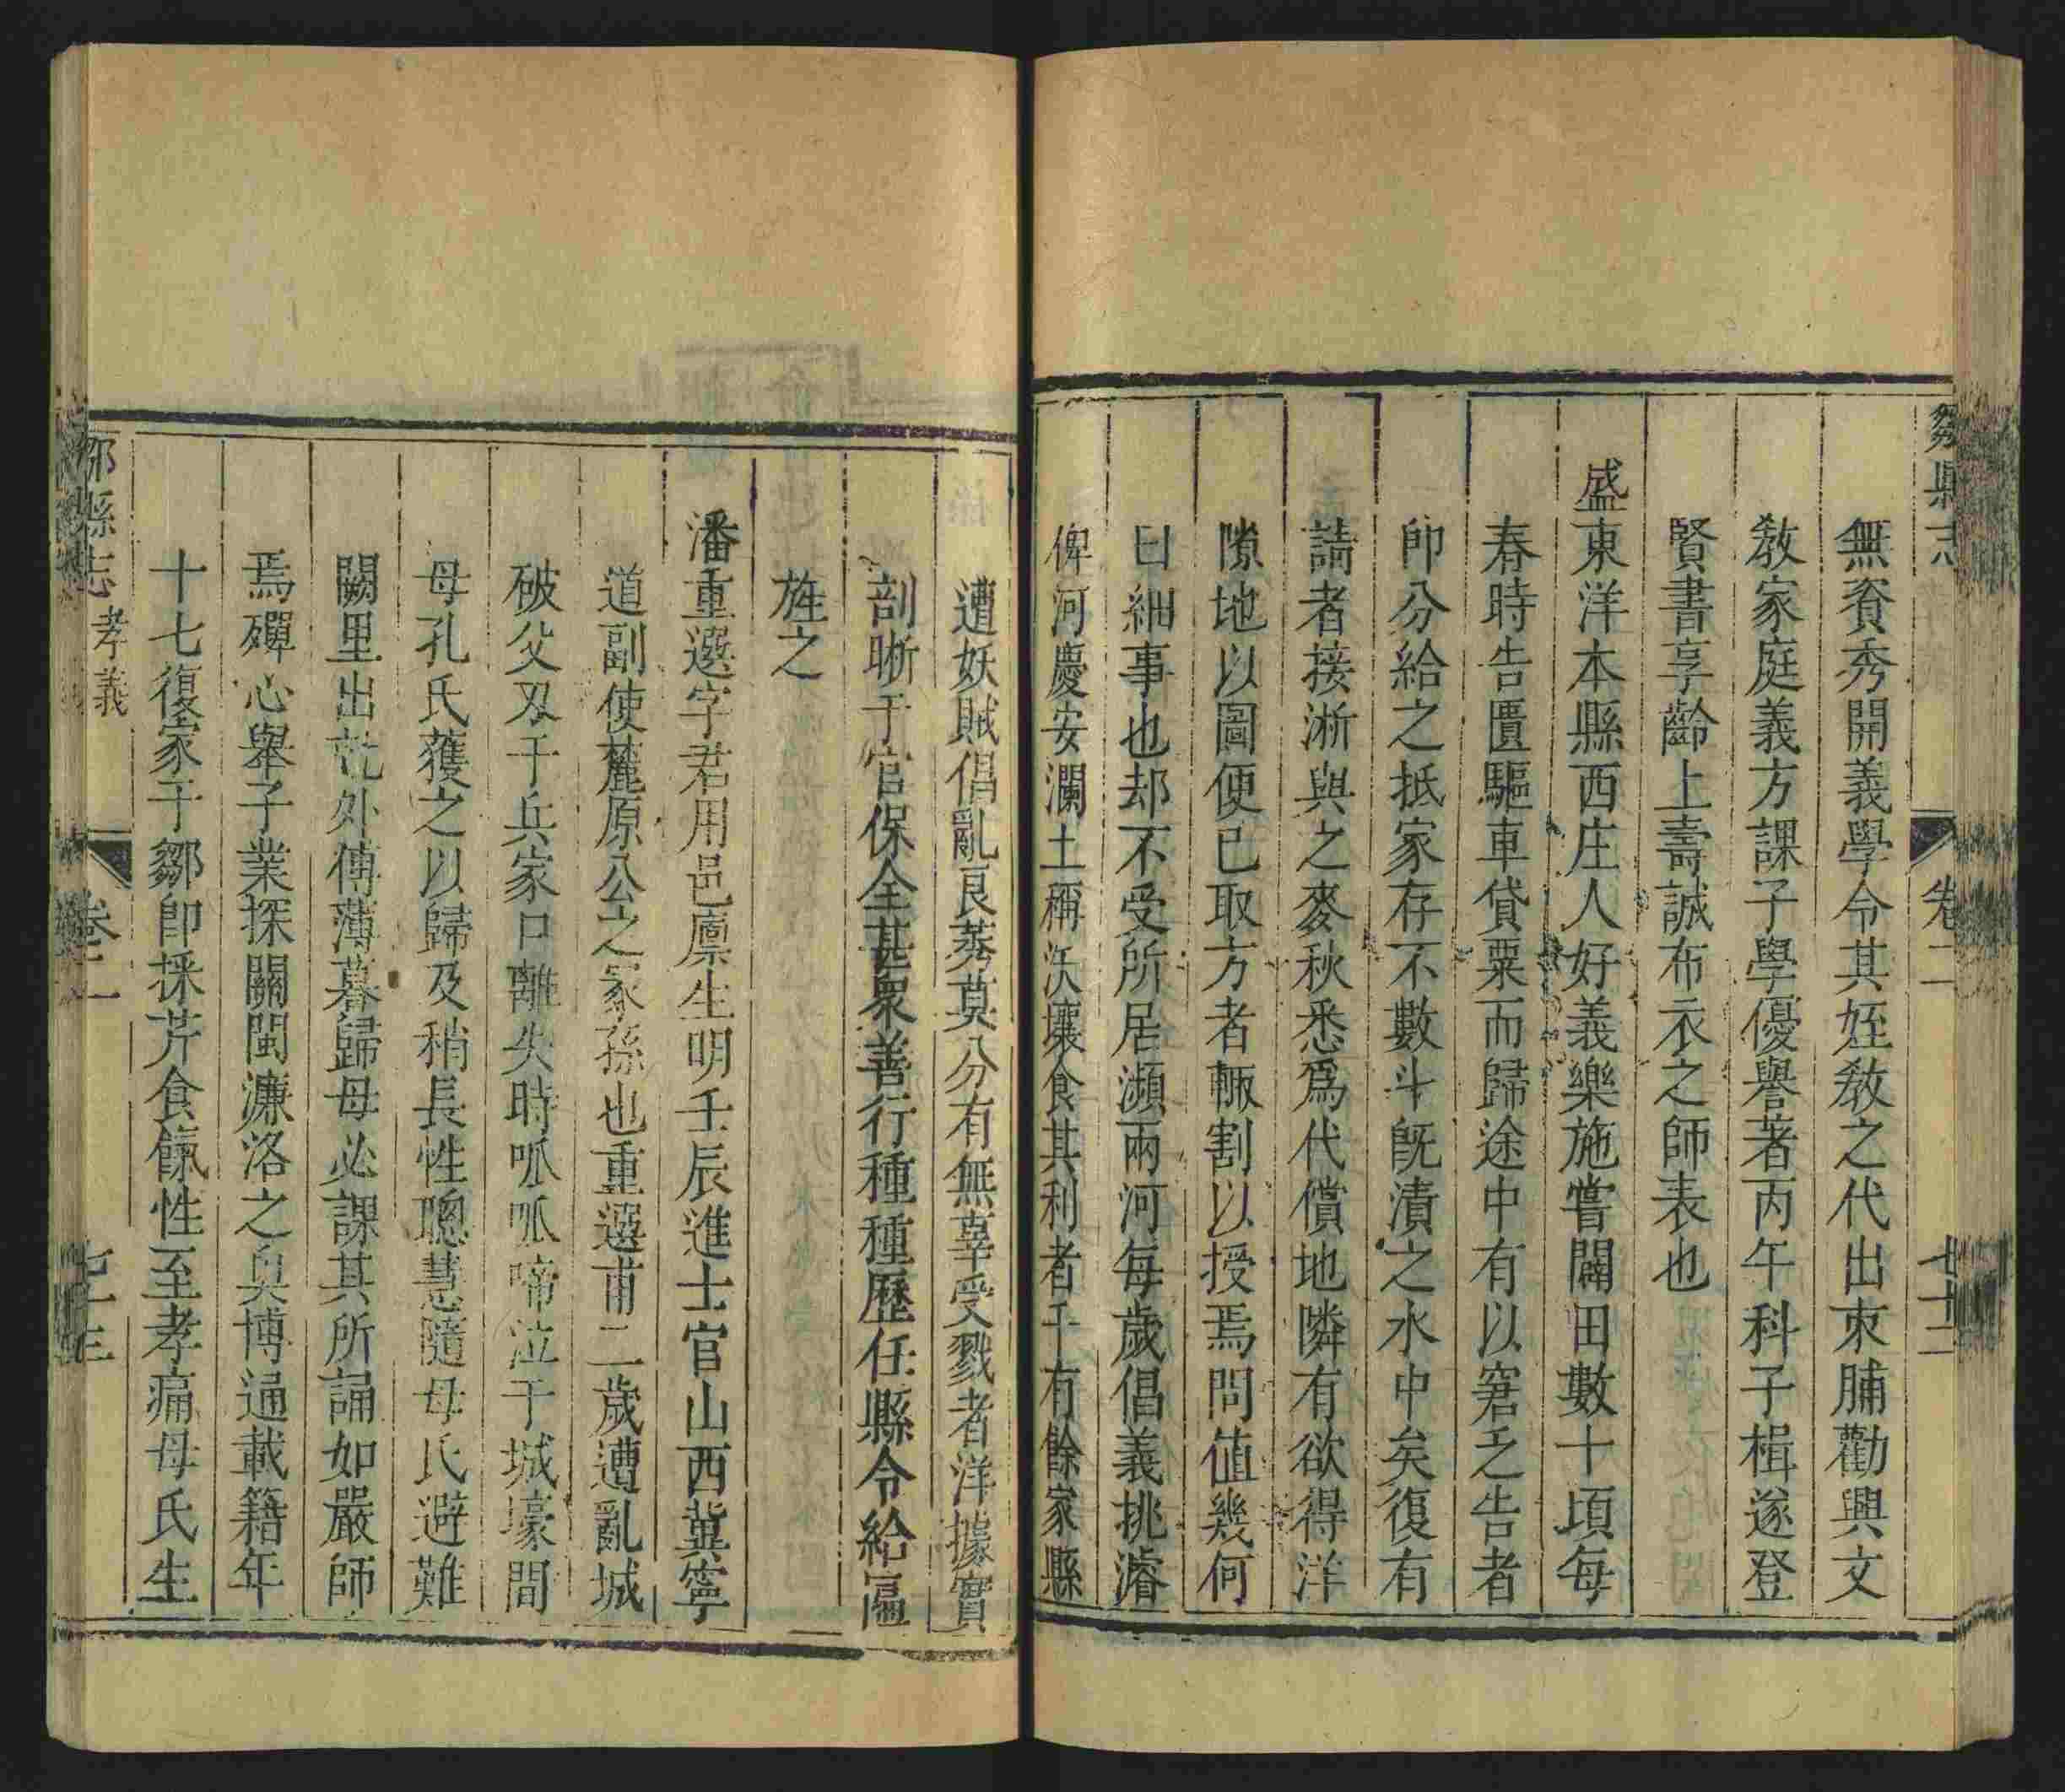 鄒縣志
卷二
七十二
無資秀開義學令其姪敎之代出束脯勸興文
敎家庭義方課子學優譽著丙午科子楫遂登
賢書享齡上壽誠布衣之師表也
盛東洋本縣西庄人好義樂施嘗闢田數十頃每
春時告匱驅車貸粟而歸途中有以窘乏告者
即分給之抵家存不數斗旣漬之水中矣復有
請者接淅與之麥秋悉爲代償地隣有欲得洋
隙地以圖便已取方者輙割以授焉問值幾何
曰細事也却不受所居瀕兩河每歲倡義挑濬
俾河慶安瀾土稱沃壤食其利者千有餘家縣
遭妖賊倡亂良莠莫分有無辜受戮者洋據實
剖晰于官保全甚衆善行種種歷任縣令給匾
旌之
潘重選字君用邑廪生明壬辰進士官山西冀寧
道副使麓原公之冢孫也重選甫二歲遭亂城
破父刄于兵家口離失時呱呱啼泣于城壕間
母孔氏獲之以歸及稍長性聰慧隨母氏避難
闕里出就外傅薄暮歸母必課其所誦如嚴師
焉殫心舉子業探關閩濂洛之奥博通載籍年
十七復家于鄒卽採芹食餼性至孝痛母氏生
鄒縣志
孝義
卷二
七十三